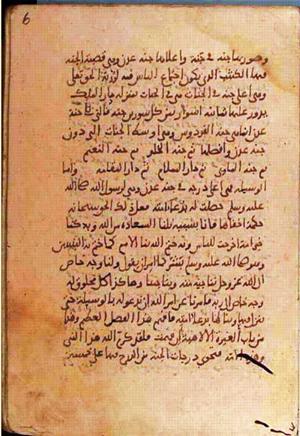 6
وصورها جنة في جنة واعلاها جنة عدن وهي قصبة الجنة
فيها الكثيب الذي يكون اجتماع الناس فيه لرؤية الحق تعلى
وهي اعلى جنة في الجنات هي في الجنات بمنزلة دار الملك
يدور عليها ثمانية اسوار بين كل سورين جنة فالتي تلي جنة
عدن انما هي جنة الفردوس وهي اوسط الجنات التي دون
جنة عدن وافضلها ثم جنة الخلد ثم جنة النعيم
ثم جنة الماوى ثم دار السلام ثم دار المقامة واما
الوسيلة فهي اعلى درجة في جنة عدن وهي لرسول الله صلى الله
عليه وسلم حصلت له بدعاء امته فعل ذلك الحق سبحانه
حكمة اخفاها فانا بسببه نلنا السعادة من الله وبه كنا
خير امة اخرجت للناس وبه ختم الله بنا الامم كما ختم به النبيين
وهو صلى الله عليه وسلم بشر كما امر ان يقول ولنا وجه خاص
الى الله عز وجل نناجيه منه ويناجينا وهكذا كل مخلوق له
وجه خاص الى ربه فامرنا عن امر الله ان ندعو له بالوسيلة حتى
ينزل فيها وينالها بدعاء امته فافهم هذا الفضل العظيم وهذا
من باب الغيرة الالهية ان فهمت فلقد كرم الله هذا النبي
وهذه الامة فتحوي درجات الجنة من الدرج فيها على خمسة